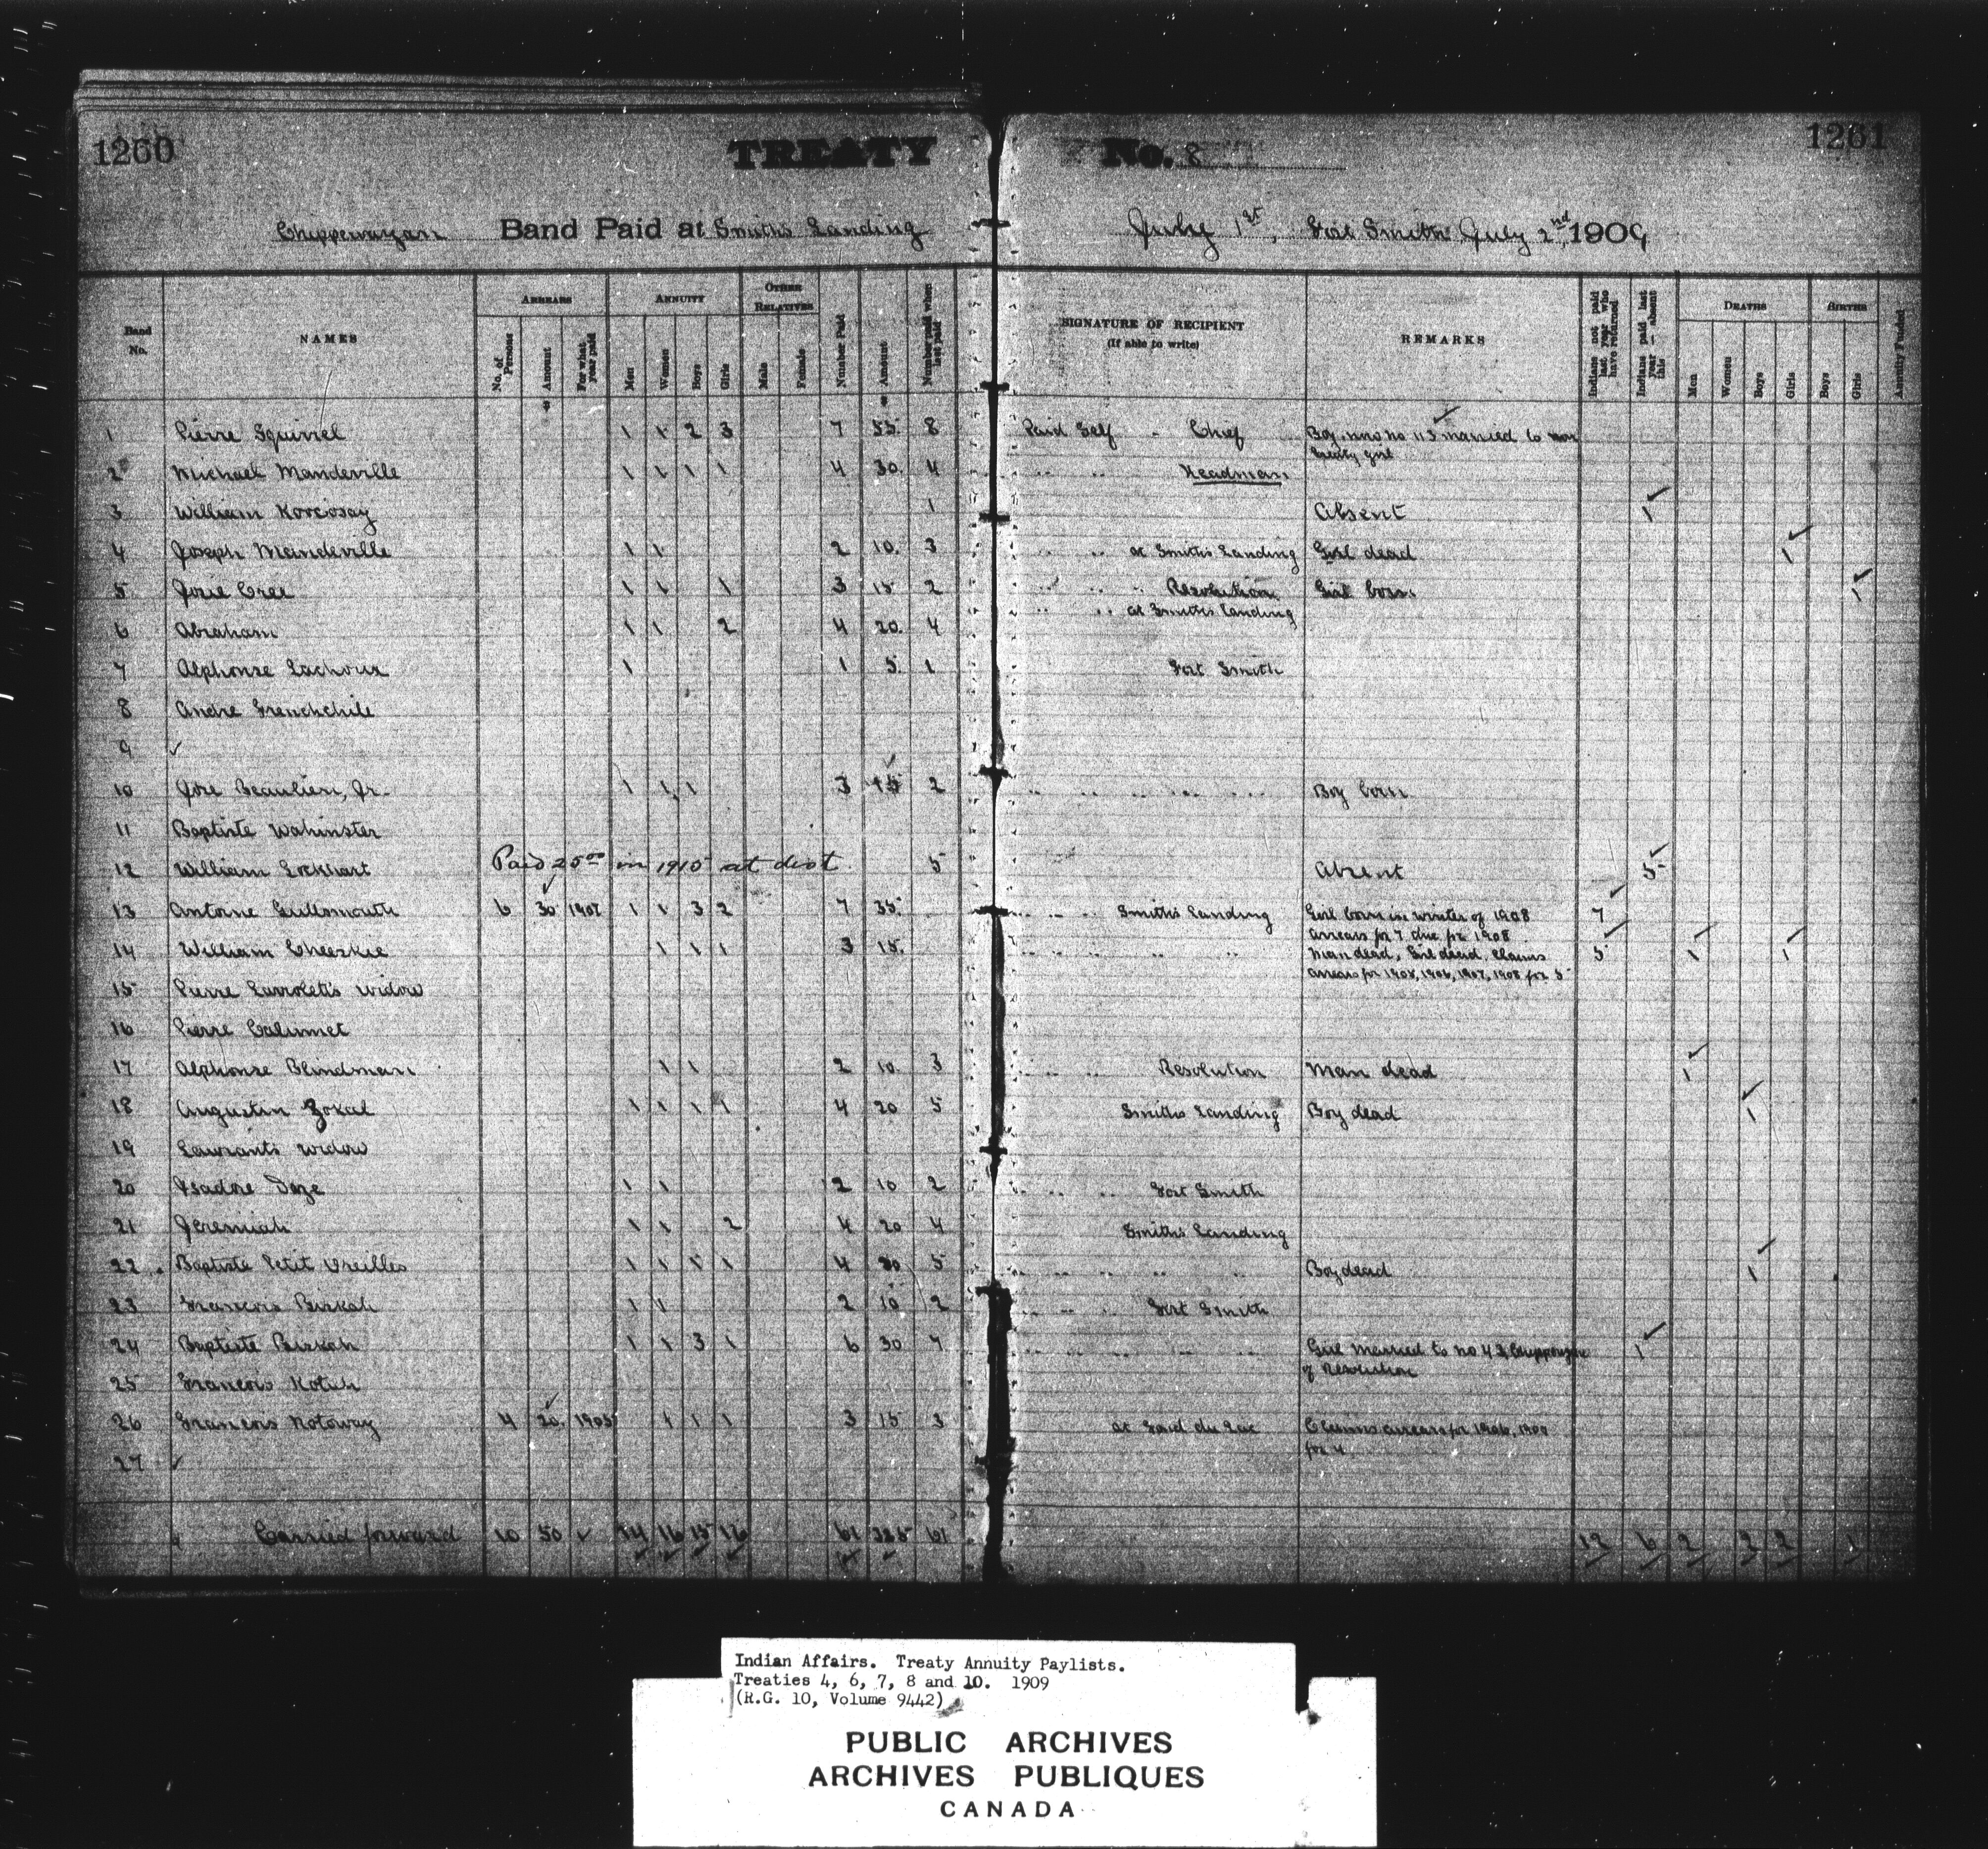 1260
TREATY No. 8
1261
Chippewayan Band Paid at Smith's Landing July 1st, Fort Smith July 2nd, 1909
Band No. NAMES ARREARS No. of Persons Amount For what year paid ANNUITY Men Women Boys Girls OTHER RELATIVES Male Female Number Paid Amount Number paid when last paid SIGNATURE OF RECIPIENT (If able to write) REMARKS Indians not paid last year who have returned Indians paid last year — absent this DEATHS Men Women Boys Girls BIRTHS Boys Girls Annuity Funded
$ $
1 Pierre Squirrel 1 1 2 3 7 55 8 Paid Self - Chief Boy now no 115 married to non
treaty girl
2 Michael Mandeville 1 1 1 1 4 30 4 " " Headman
3 William 1 Absent 1
4 Joseph Mandeville 1 1 2 10 3 " " at Smiths Landing Girl dead 1
5 Josie Cree 1 1 1 3 15 2 " " Resolution Girl born 1
6 Abraham 1 1 2 4 20 4 " " at Smiths Landing
7 Alphonse 1 1 5 1 Fort Smith
8 Andre
9 ✓
10 Jose Beaulieu, Jr. 1 1 1 3 15 2 " " " " Boy born
11 Baptiste
12 William Lockhart Paid 25.00 in 1910 at dist 5 Absent 5
13 Antoine Gullsmouth 6 30 1907 1 1 3 2 7 35 " " Smiths Landing Girl born in winter of 1908 7
arrears for 7 due for 1908
14 William Cheezkie 1 1 1 3 15 " " " " Man dead, Girl dead, Claims 5 1 1
arrears for 1905, 1906, 1907, 1908 for 5
15 Pierre widow
16 Pierre Calumet
17 Alphonse Blindman 1 1 2 10 3 " " Resolution Man dead 1
18 Augustin 1 1 1 1 4 20 5 Smiths Landing Boy dead 1
19 Laurant's widow
20 Isadore Daze 1 1 2 10 2 " " Fort Smith
21 Jeremiah 1 1 2 4 20 4 Smiths Landing
22 Baptiste Petit Oreilles 1 1 1 1 4 20 5 " " " " Boy dead 1
23 Francois Biskah 1 1 2 10 2 " " Fort Smith
24 Baptiste Biskah 1 1 3 1 6 30 7 " " " " Girl married to no 42 1
of Resolution
25 Francois
26 Francois 4 20 1905 1 1 1 3 15 3 at Fond du Lac Claims arrears for 1906,
for 4
27 ✓
Carried forward 10 50 ✓ 14 16 15 16 61 61 12 6 2 2 2 1
Indian Affairs. Treaty Annuity Paylists.
Treaties 4, 6, 7, 8 and 10. 1909
(R.G. 10, Volume 9442)
PUBLIC ARCHIVES
ARCHIVES PUBLIQUES
CANADA